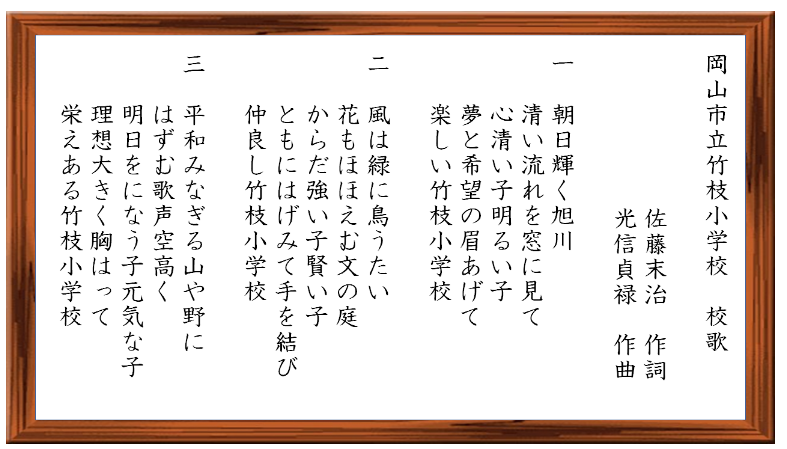 岡山市立竹枝小学校　校歌
佐藤末治　作詞
光信貞禄　作曲
一　朝日輝く旭川
清い流れを窓に見て
心清い子明るい子
夢と希望の眉あげて
楽しい竹枝小学校
二　風は緑に鳥うたい
花もほほえむ文の庭
からだ強い子賢い子
ともにはげみて手を結び
仲良し竹枝小学校
三　平和みなぎる山や野に
はずむ歌声空高く
明日をになう子元気な子
理想大きく胸はって
栄えある竹枝小学校